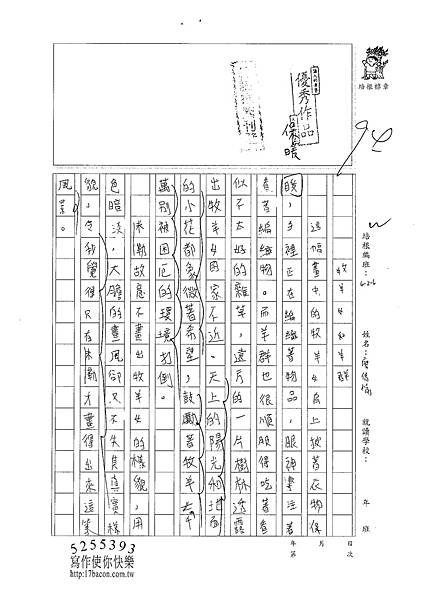 培根標章
優秀作品
94
培根編班：
姓名：
就讀學校：
年 班
第 年 月 日 次
牧羊和羊群
這幅畫中的牧羊女身上披著衣物保
暖，手裡正在編織著物品，眼神專注著
看著編織物。而羊群也很順服得吃著香
似不太好的雜草，遠方的一片樹林透露
出牧羊女困家不近。天上的陽光和地面
的小花都象徵著希望，鼓勵著牧羊女千
萬別被困厄的環境打倒。
米勒故意不畫出牧羊的樣貌，用
色暗淡，大膽的畫風卻又不失其真實樣
貌，令我覺得只有米勒才畫得出來這某
風景。
5255393
寫作使你快樂
http://17bacon.com.tw